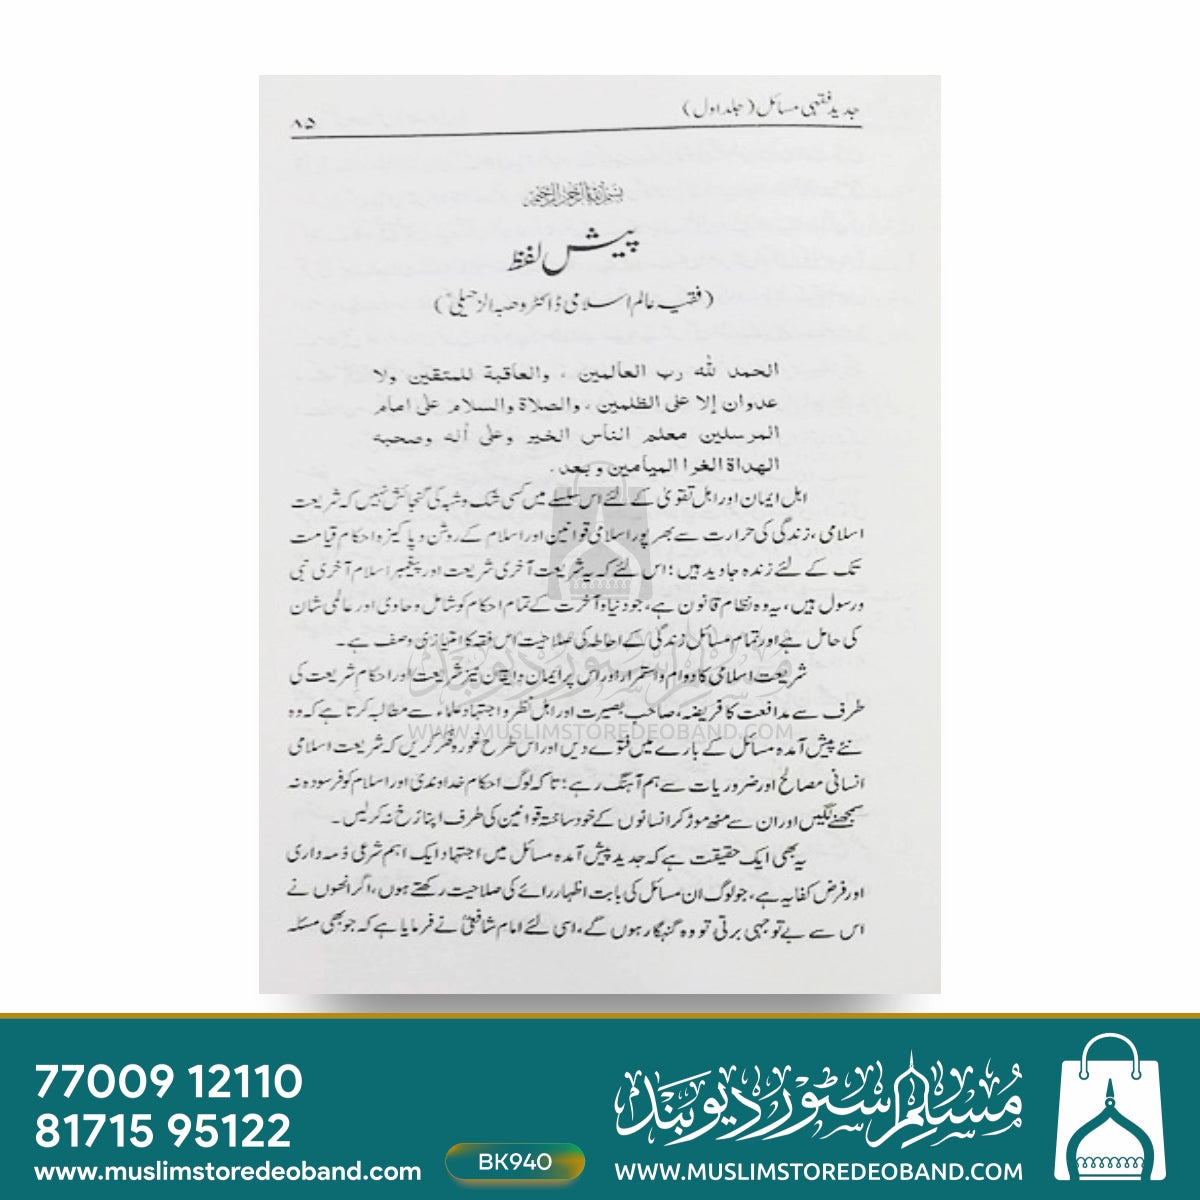 جدید فقہی مسائل (جلد اول)
۸۵
بسم اللہ الرحمن الرحیم
پیش لفظ
(فقیہ عالم اسلامی ڈاکٹر وصبہ الزحیلیؒ)
الحمد للہ رب العالمین ، والعاقبة للمتقین ولا
عدوان إلا علی الظلمین ، والصلاة والسلام علی امام
المرسلین معلم الناس الخیر وعلی آله وصحبه
الهداة الغرا المیامین وبعد .
اہل ایمان اور اہل تقویٰ کے لئے اس سلسلے میں کسی شک وشبہ کی گنجائش نہیں کہ شریعت
اسلامی ، زندگی کی حرارت سے بھرپور اسلامی قوانین اور اسلام کے روشن وپاکیزہ احکام قیامت
تک کے لئے زندہ جاوید ہیں ؛ اس لئے کہ یہ شریعت آخری شریعت اور پیغمبر اسلام آخری نبی
ورسول ہیں ، یہ وہ نظام قانون ہے ، جو دنیا وآخرت کے تمام احکام کو شامل وحاوی اور عالمی شان
کی حامل ہے اور تمام مسائل زندگی کے احاطہ کی صلاحیت اس فقہ کا امتیازی وصف ہے ۔
شریعت اسلامی کا دوام واستمرار اور اس پر ایمان وایقان نیز شریعت اور احکام شریعت کی
طرف سے مدافعت کا فریضہ ، صاحب بصیرت اور اہل نظر واجتہاد علماء سے مطالبہ کرتا ہے کہ وہ
نئے پیش آمدہ مسائل کے بارے میں فتوے دیں اور اس طرح غور وفکر کریں کہ شریعت اسلامی
انسانی مصالح اور ضروریات سے ہم آہنگ رہے ؛ تاکہ لوگ احکام خداوندی اور اسلام کو فرسودہ نہ
سمجھنے لگیں اور ان سے منھ موڑ کر انسانوں کے خود ساختہ قوانین کی طرف اپنا رخ نہ کرلیں ۔
یہ بھی ایک حقیقت ہے کہ جدید پیش آمدہ مسائل میں اجتہاد ایک اہم شرعی ذمہ داری
اور فرض کفایہ ہے ، جو لوگ ان مسائل کی بابت اظہار رائے کی صلاحیت رکھتے ہوں ، اگر انھوں نے
اس سے بے توجہی برتی تو وہ گنہگار ہوں گے ، اسی لئے امام شافعیؒ نے فرمایا ہے کہ جو بھی مسئلہ
مسلم سٹور دیوبند
WWW.MUSLIMSTOREDEOBAND.COM
77009 12110
81715 95122
www.muslimstoredeoband.com
BK940
مسلم سٹور دیوبند
WWW.MUSLIMSTOREDEOBAND.COM